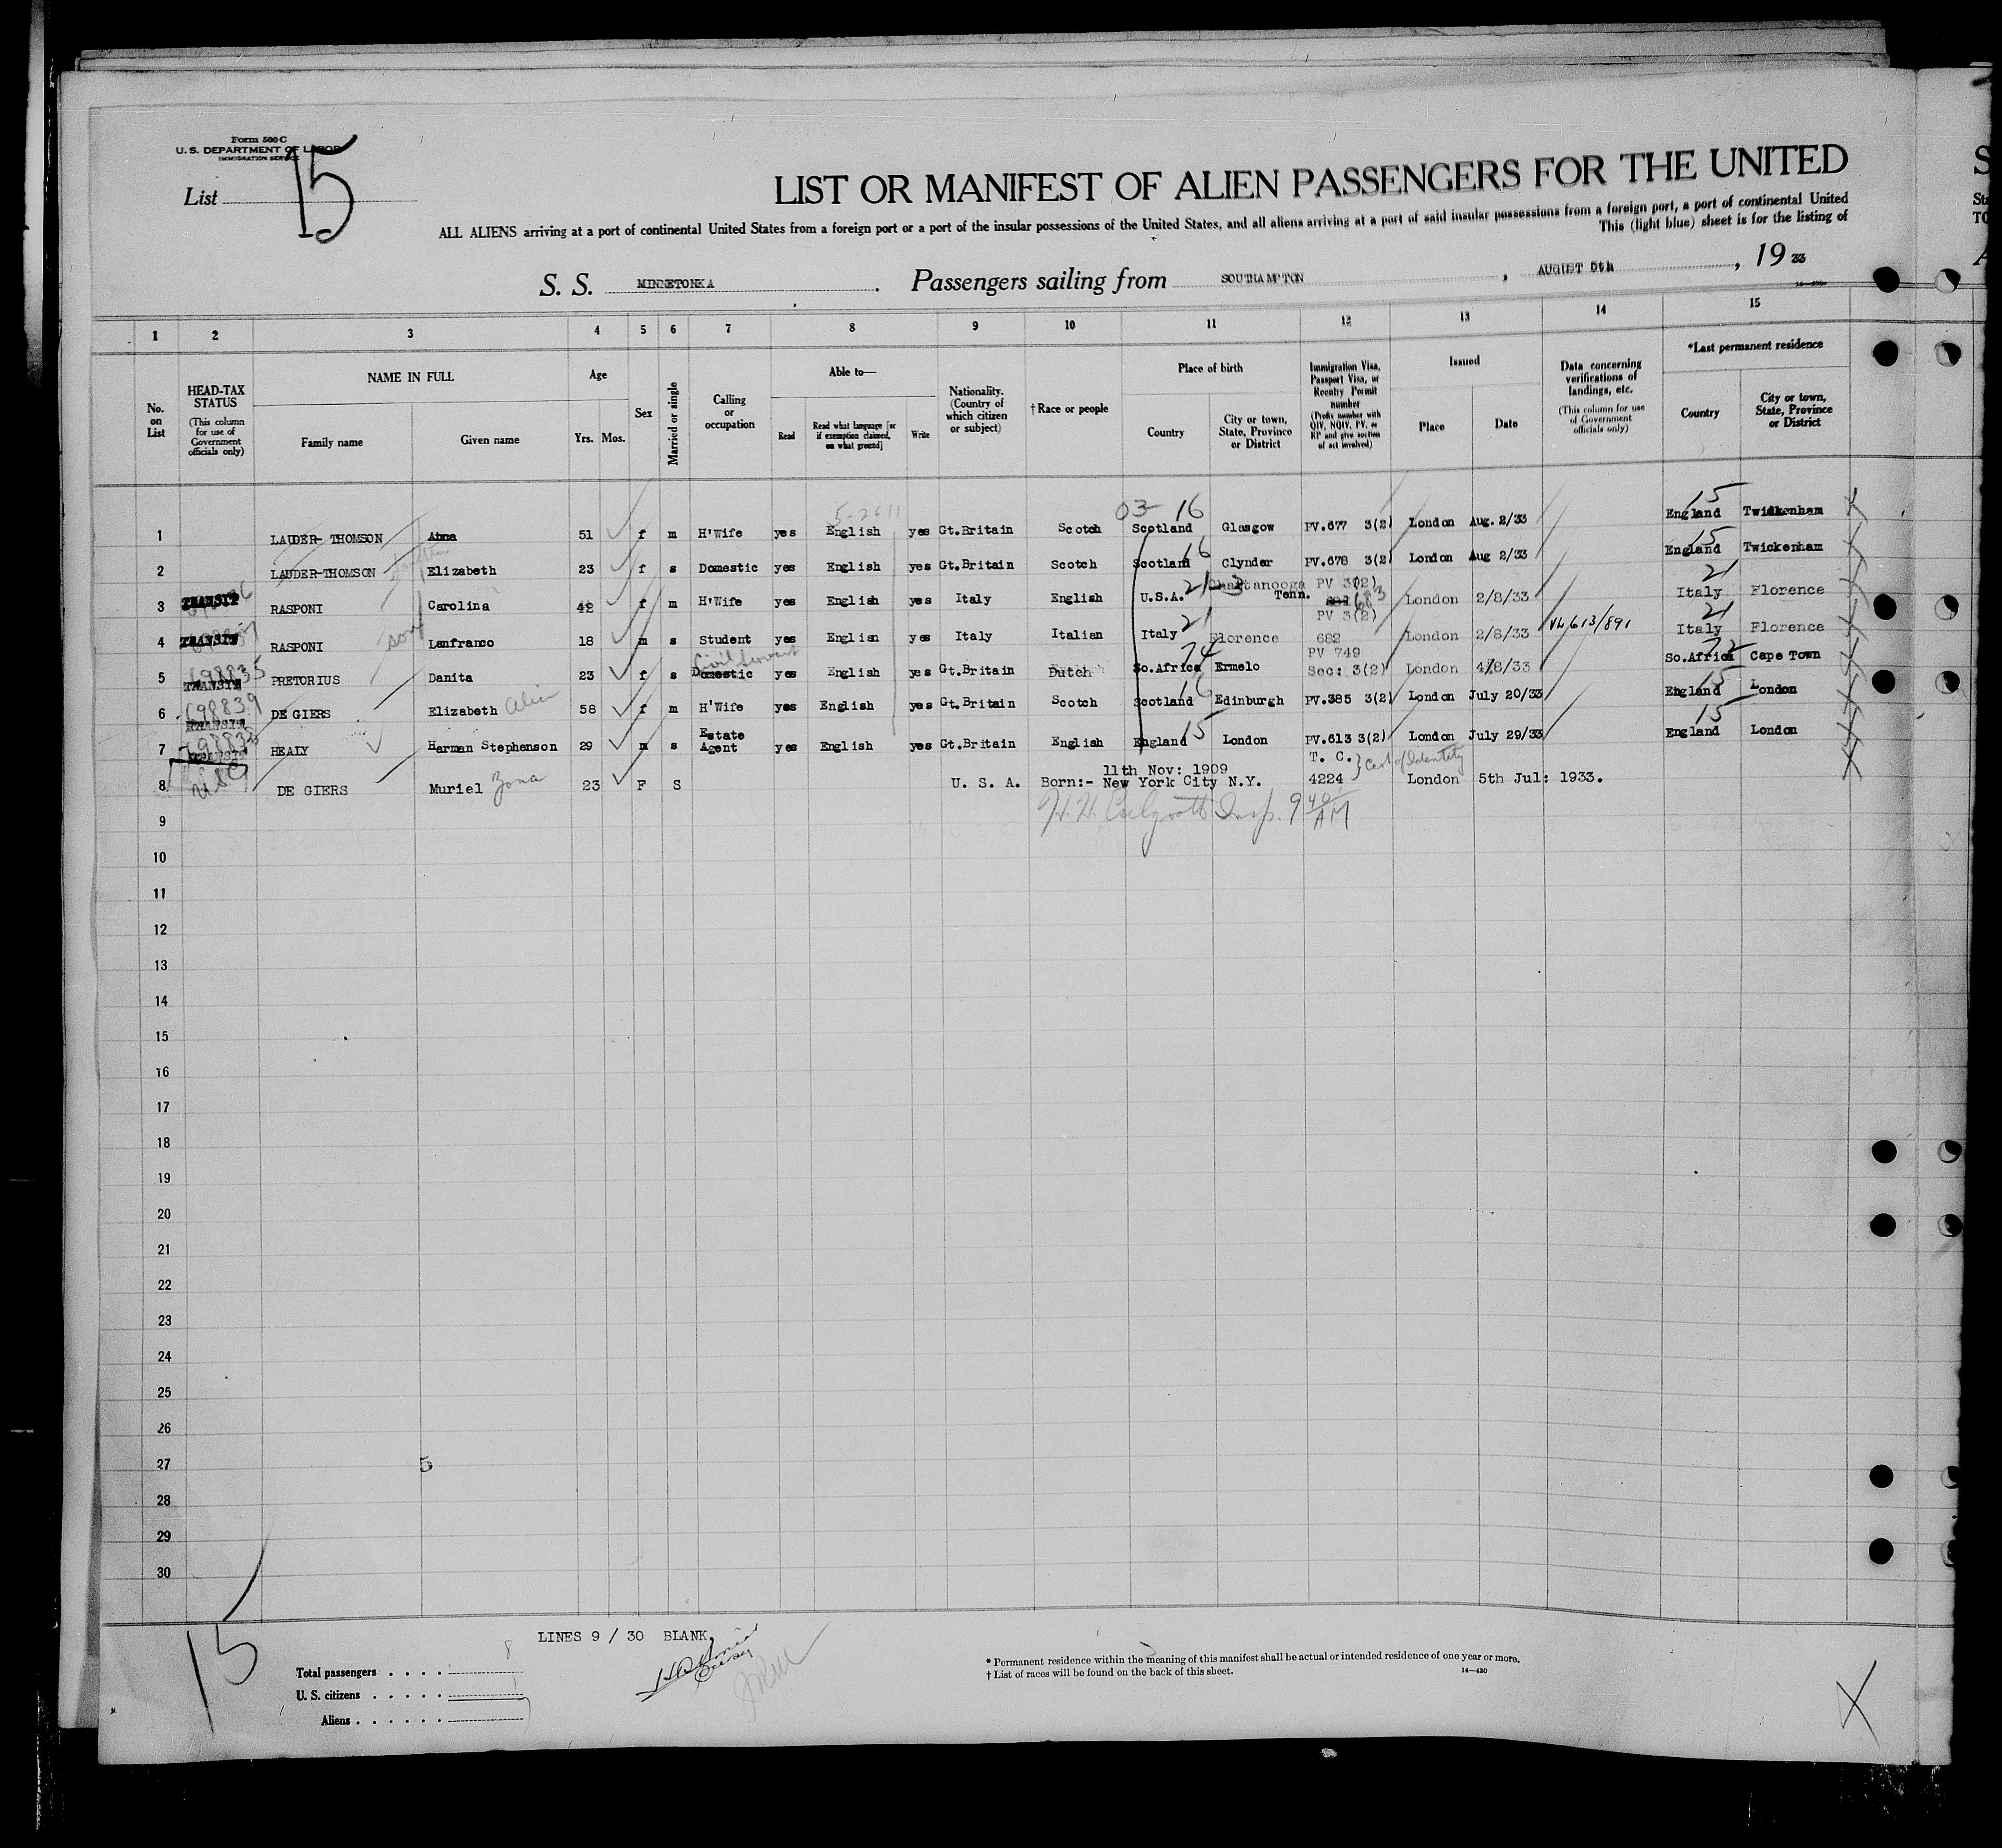 Form 500 C
U. S. DEPARTMENT OF LABOR
IMMIGRATION SERVICE
List 15
LIST OR MANIFEST OF ALIEN PASSENGERS FOR THE UNITED
ALL ALIENS arriving at a port of continental United States from a foreign port or a port of the insular possessions of the United States, and all aliens arriving at a port of said insular possessions from a foreign port, a port of continental United
This (light blue) sheet is for the listing of
S. S. MINNETONKA . Passengers sailing from SOUTHAMPTON , AUGUST 5th , 19 33
1 2 3 4 5 6 7 8 9 10 11 12 13 14 15
No. on List
HEAD-TAX STATUS (This column for use of Government officials only)
NAME IN FULL
Family name Given name
Age
Yrs. Mos.
Sex
Married or single
Calling or occupation
Able to—
Read Read what language [or if exemption claimed, on what ground] Write
Nationality. (Country of which citizen or subject)
†Race or people
Place of birth
Country City or town, State, Province or District
Immigration Visa, Passport Visa, or Reentry Permit number (Prefix number with QIV, NQIV, PV, or RP and give section of act involved)
Issued
Place Date
Data concerning verifications of landings, etc. (This column for use of Government officials only)
*Last permanent residence
Country City or town, State, Province or District
5-2611 03- 16 15
1 LAUDER-THOMSON Anna 51 f m H'Wife yes English yes Gt.Britain Scotch Scotland Glasgow PV.677 3(2) London Aug. 2/33 England Twickenham
16 15
2 LAUDER-THOMSON Elizabeth 23 f s Domestic yes English yes Gt.Britain Scotch Scotland Clynder PV.678 3(2) London Aug 2/33 England Twickenham
3 TRANSIT RASPONI Carolina 42 f m H'Wife yes English yes Italy English U.S.A. Chattanooga Tenn. PV 3(2) 683 London 2/8/33 21 Italy Florence
4 TRANSIT RASPONI son Lanfranco 18 m s Student yes English yes Italy Italian Italy 21 Florence PV 3(2) 682 London 2/8/33 VL613/891 21 Italy Florence
5 698835 TRANSIT PRETORIUS Danita 23 f s Civil Servant Domestic yes English yes Gt.Britain Dutch So.Africa 74 Ermelo PV 749 Sec: 3(2) London 4/8/33 So.Africa Cape Town
6 698839 TRANSIT DE GIERS Elizabeth Alice 58 f m H'Wife yes English yes Gt.Britain Scotch Scotland 16 Edinburgh PV.385 3(2) London July 20/33 15 England London
7 HEALY Harman Stephenson 29 m s Estate Agent yes English yes Gt.Britain English England 15 London PV.613 3(2) London July 29/33 15 England London
8 USC DE GIERS Muriel Zona 23 F S U. S. A. Born:- 11th Nov: 1909 New York City N.Y. T. C. 4224 } Cert of Identity London 5th Jul: 1933.
9 Insp. 9 40 AM
10
11
12
13
14
15
16
17
18
19
20
21
22
23
24
25
26
27 5
28
29
30
15
LINES 9 / 30 BLANK.
Total passengers . . . . 8
U. S. citizens . . . . . 1
Aliens . . . . . . 7
* Permanent residence within the meaning of this manifest shall be actual or intended residence of one year or more.
† List of races will be found on the back of this sheet.
14—430